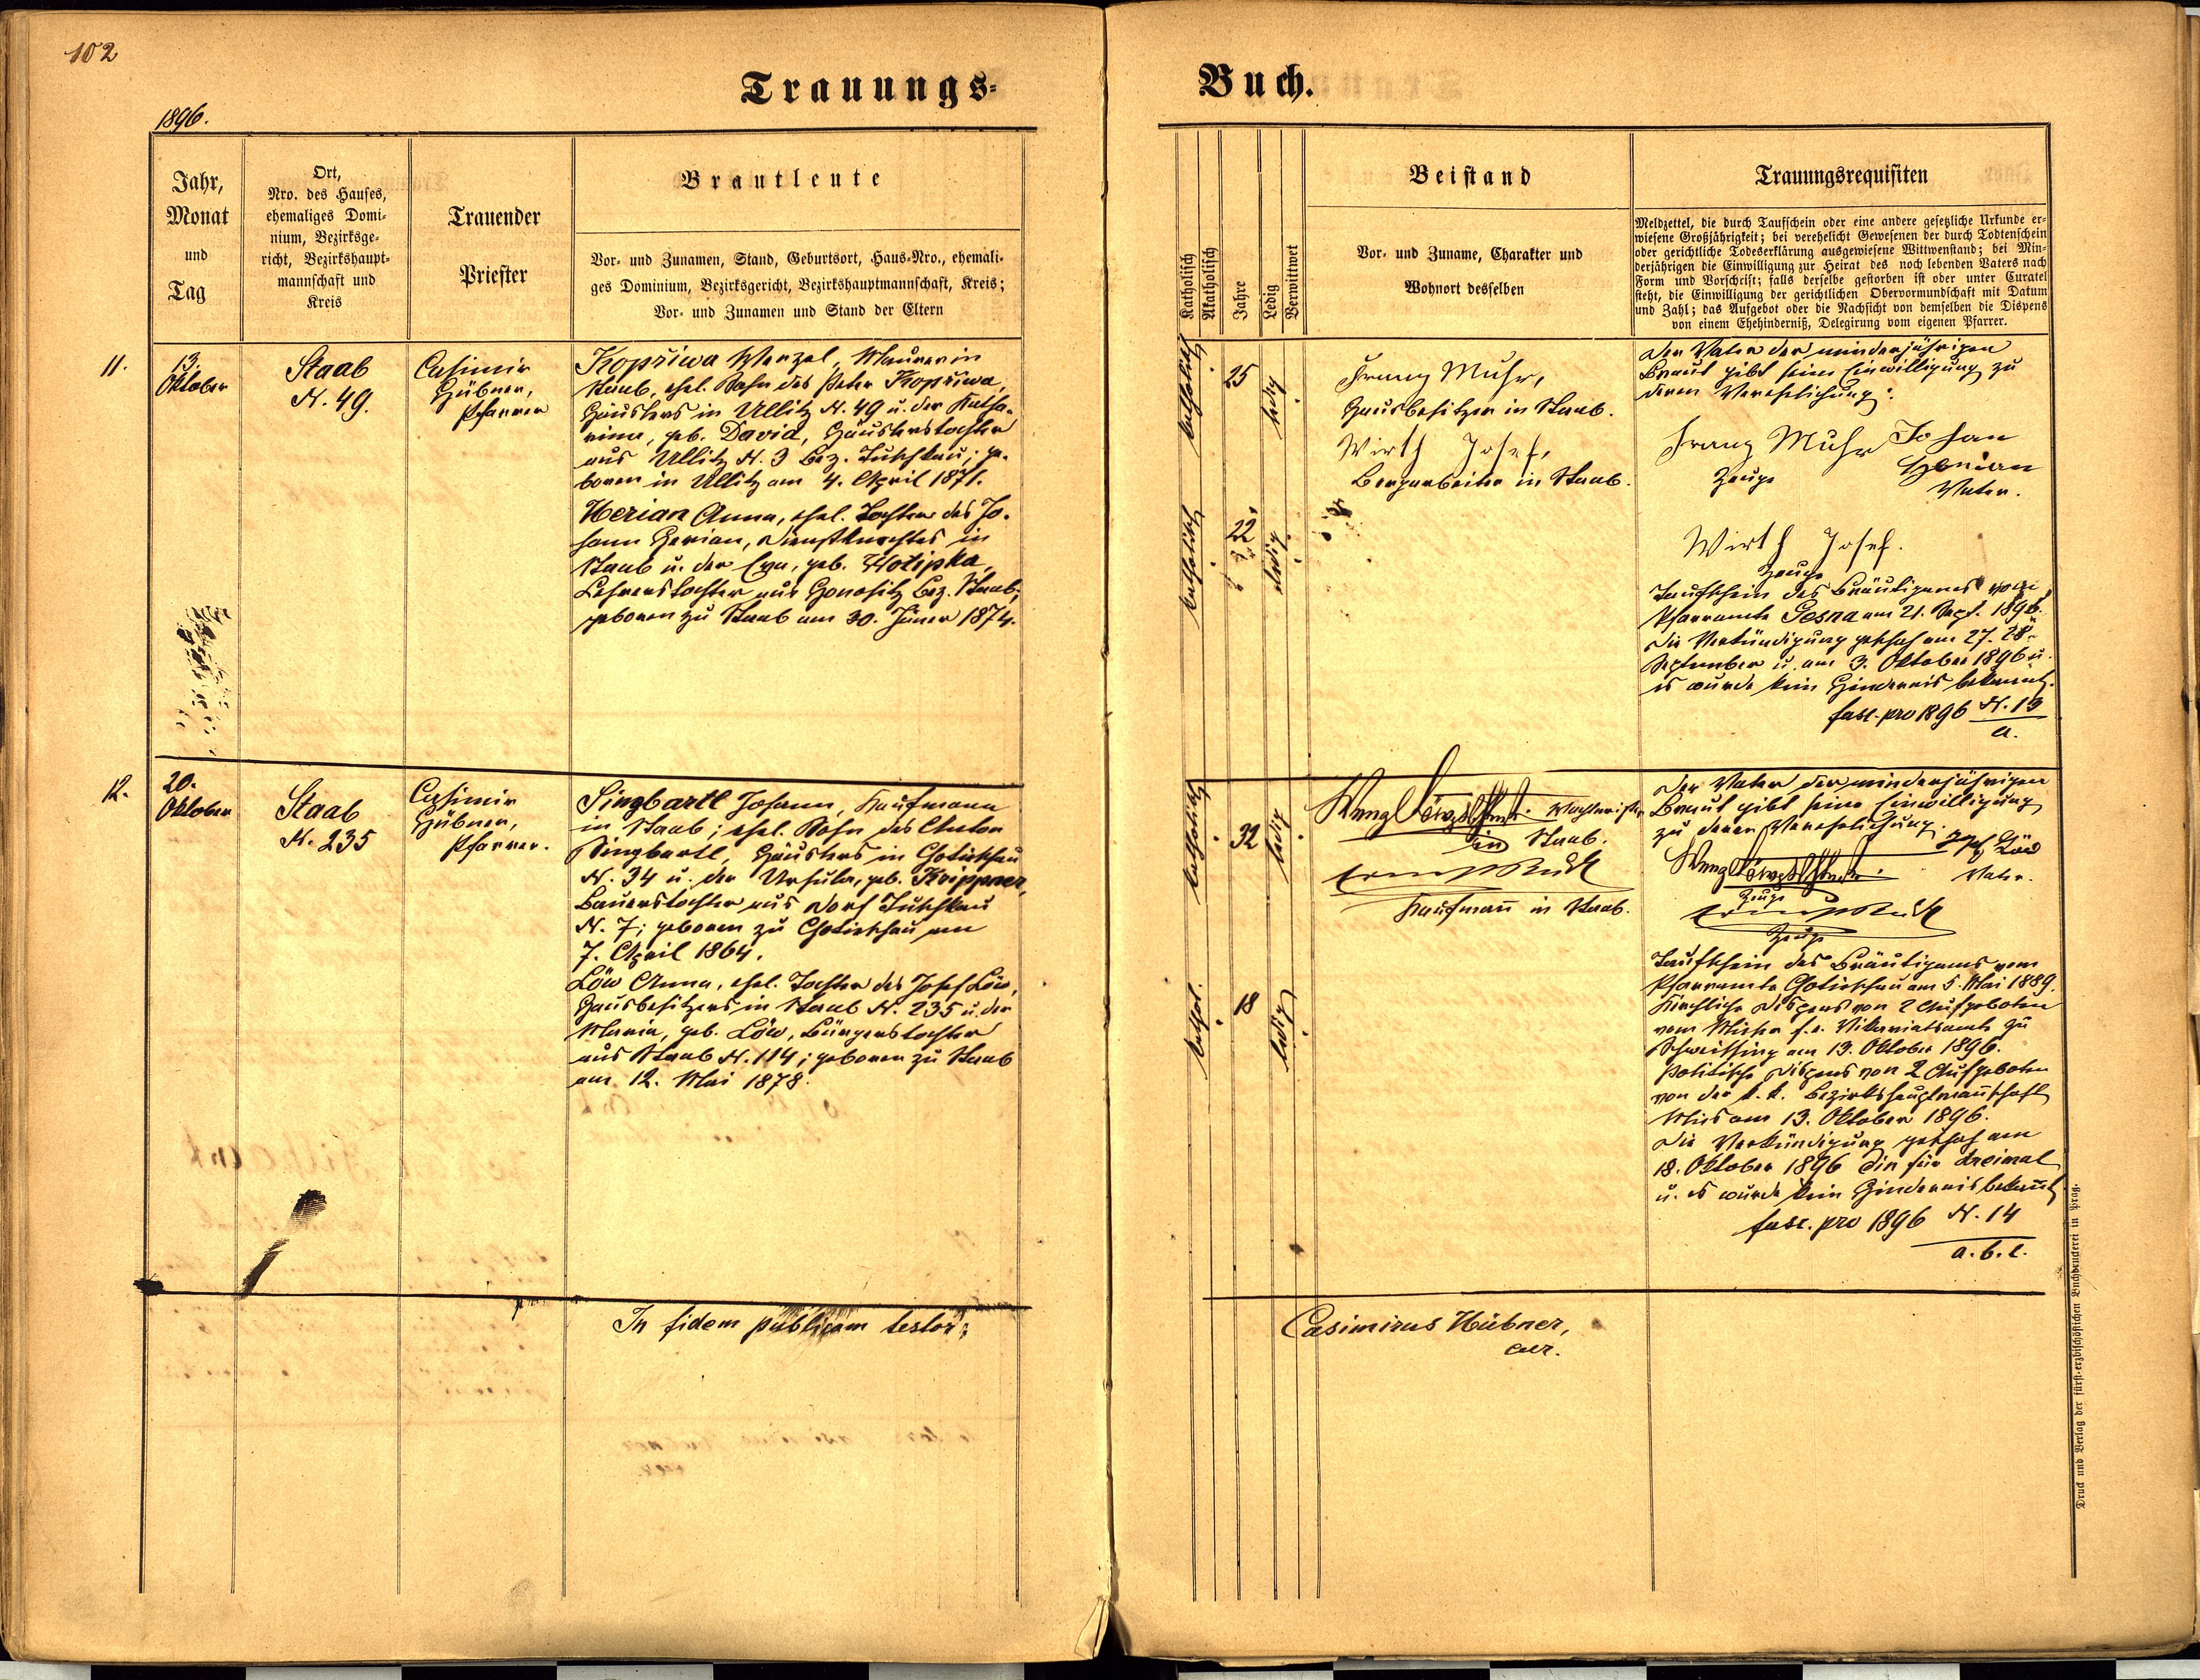 102
Trauungs-
Buch.
1896.
Jahr,
Monat
und
Tag
Ort,
Nro. des Hauses,
ehemaliges Domi-
nium, Bezirksge-
richt, Bezirkshaupt-
mannschaft und
Kreis
Trauender
Priester
Brautleute
Vor- und Zunamen, Stand, Geburtsort, Haus-Nro., ehemali-
ges Dominium, Bezirksgericht, Bezirkshauptmannschaft, Kreis;
Vor- und Zunamen und Stand der Eltern
Katholisch
Akatholisch
Jahre
Ledig
Verwittwet
Beistand
Vor- und Zuname, Charakter und
Wohnort desselben
Trauungsrequisiten
Meldzettel, die durch Taufschein oder eine andere gesetzliche Urkunde er-
wiesene Großjährigkeit; bei verehelicht Gewesenen der durch Todtenschein
oder gerichtliche Todeserklärung ausgewiesene Wittwenstand; bei Min-
derjährigen die Einwilligung zur Heirat des noch lebenden Vaters nach
Form und Vorschrift; falls derselbe gestorben ist oder unter Curatel
steht, die Einwilligung der gerichtlichen Obervormundschaft mit Datum
und Zahl; das Aufgebot oder die Nachsicht von demselben die Dispens
von einem Ehehinderniß, Delegirung vom eigenen Pfarrer.
11.
13.
Oktober
Staab
N. 49.
Casimir
Hübner,
Pfarrer
Kopřiwa Wenzel, Maurer in
Staab, ehel. Sohn des Peter Kopřiwa,
Häuslers in Ullitz N. 49 u. der Katha-
rina, geb. David, Häuslerstochter
aus Ullitz N. 3 Bez. Tuschkau; ge-
boren in Ullitz am 4. April 1871.
Herian Anna, ehel. Tochter des Jo-
hann Herian, Dienstknechtes in
Staab u. der Eva, geb. Wotipka,
Lehrerstochter aus Honositz Bez. Staab;
geboren zu Staab am 30. Jäner 1874.
katholisch
25
ledig
katholisch
22
ledig
Franz Muhr,
Hausbesitzer in Staab.
Wirth Josef,
Bergarbeiter in Staab.
Der Vater der minderjährigen
Braut gibt seine Einwilligung zu
deren Verehelichung:
Franz Muhr Johan
Zeuge Herian
Vater.
Wirth Josef.
Zeuge
Taufschein des Bräutigams vom
Pfarramte Tesna am 21. Sept. 1896.
Die Verkündigung geschah am 27. 28.
September u. am 3. Oktober 1896 u.
es wurde kein Hindernis bekannt.
fasc. pro 1896 N. 13
a.
12.
20.
Oktober
Staab
N. 235
Casimir
Hübner,
Pfarrer.
Singbartl Johann, Kaufmann
in Staab; ehel. Sohn des Anton
Singbartl, Häuslers in Chotieschau
N. 34 u. der Ursula, geb. Krippner,
Bauerstochter aus Dorf Tuschkau
N. 7; geboren zu Chotieschau am
7. April 1864.
Löw Anna, ehel. Tochter des Josef Löw,
Hausbesitzers in Staab N. 235 u. der
Maria, geb. Löw, Bürgerstochter
aus Staab N. 114; geboren zu Staab
am 12. Mai 1878.
katholisch
32
ledig
kathol.
18
ledig
Wenzl
in Staab.
Kaufmann in Staab.
Der Vater der minderjährigen
Braut gibt seine Einwilligung
zu deren Verehelichung.
Josef Löw
Wenzl
Vater.
Zeuge
Zeuge
Taufschein des Bräutigams vom
Pfarramte Chotieschau am 5. Mai 1889.
Kirchliche Dispens von 2 Aufgeboten
vom Mieser f. e. Vikariatsamte zu
Schweissing am 13. Oktober 1896.
Politische Dispens von 2 Aufgeboten
von der k. k. Bezirkshauptmannschaft
Mies am 13. Oktober 1896.
Die Verkündigung geschah am
18. Oktober 1896 ein für dreimal
u. es wurde kein Hindernis bekannt.
fasc. pro 1896 N. 14
a. b. c.
In fidem publicam testor:
Casimirus Hübner,
Druck und Verlag der fürst-erzbischöflichen Buchdruckerei in Prag.